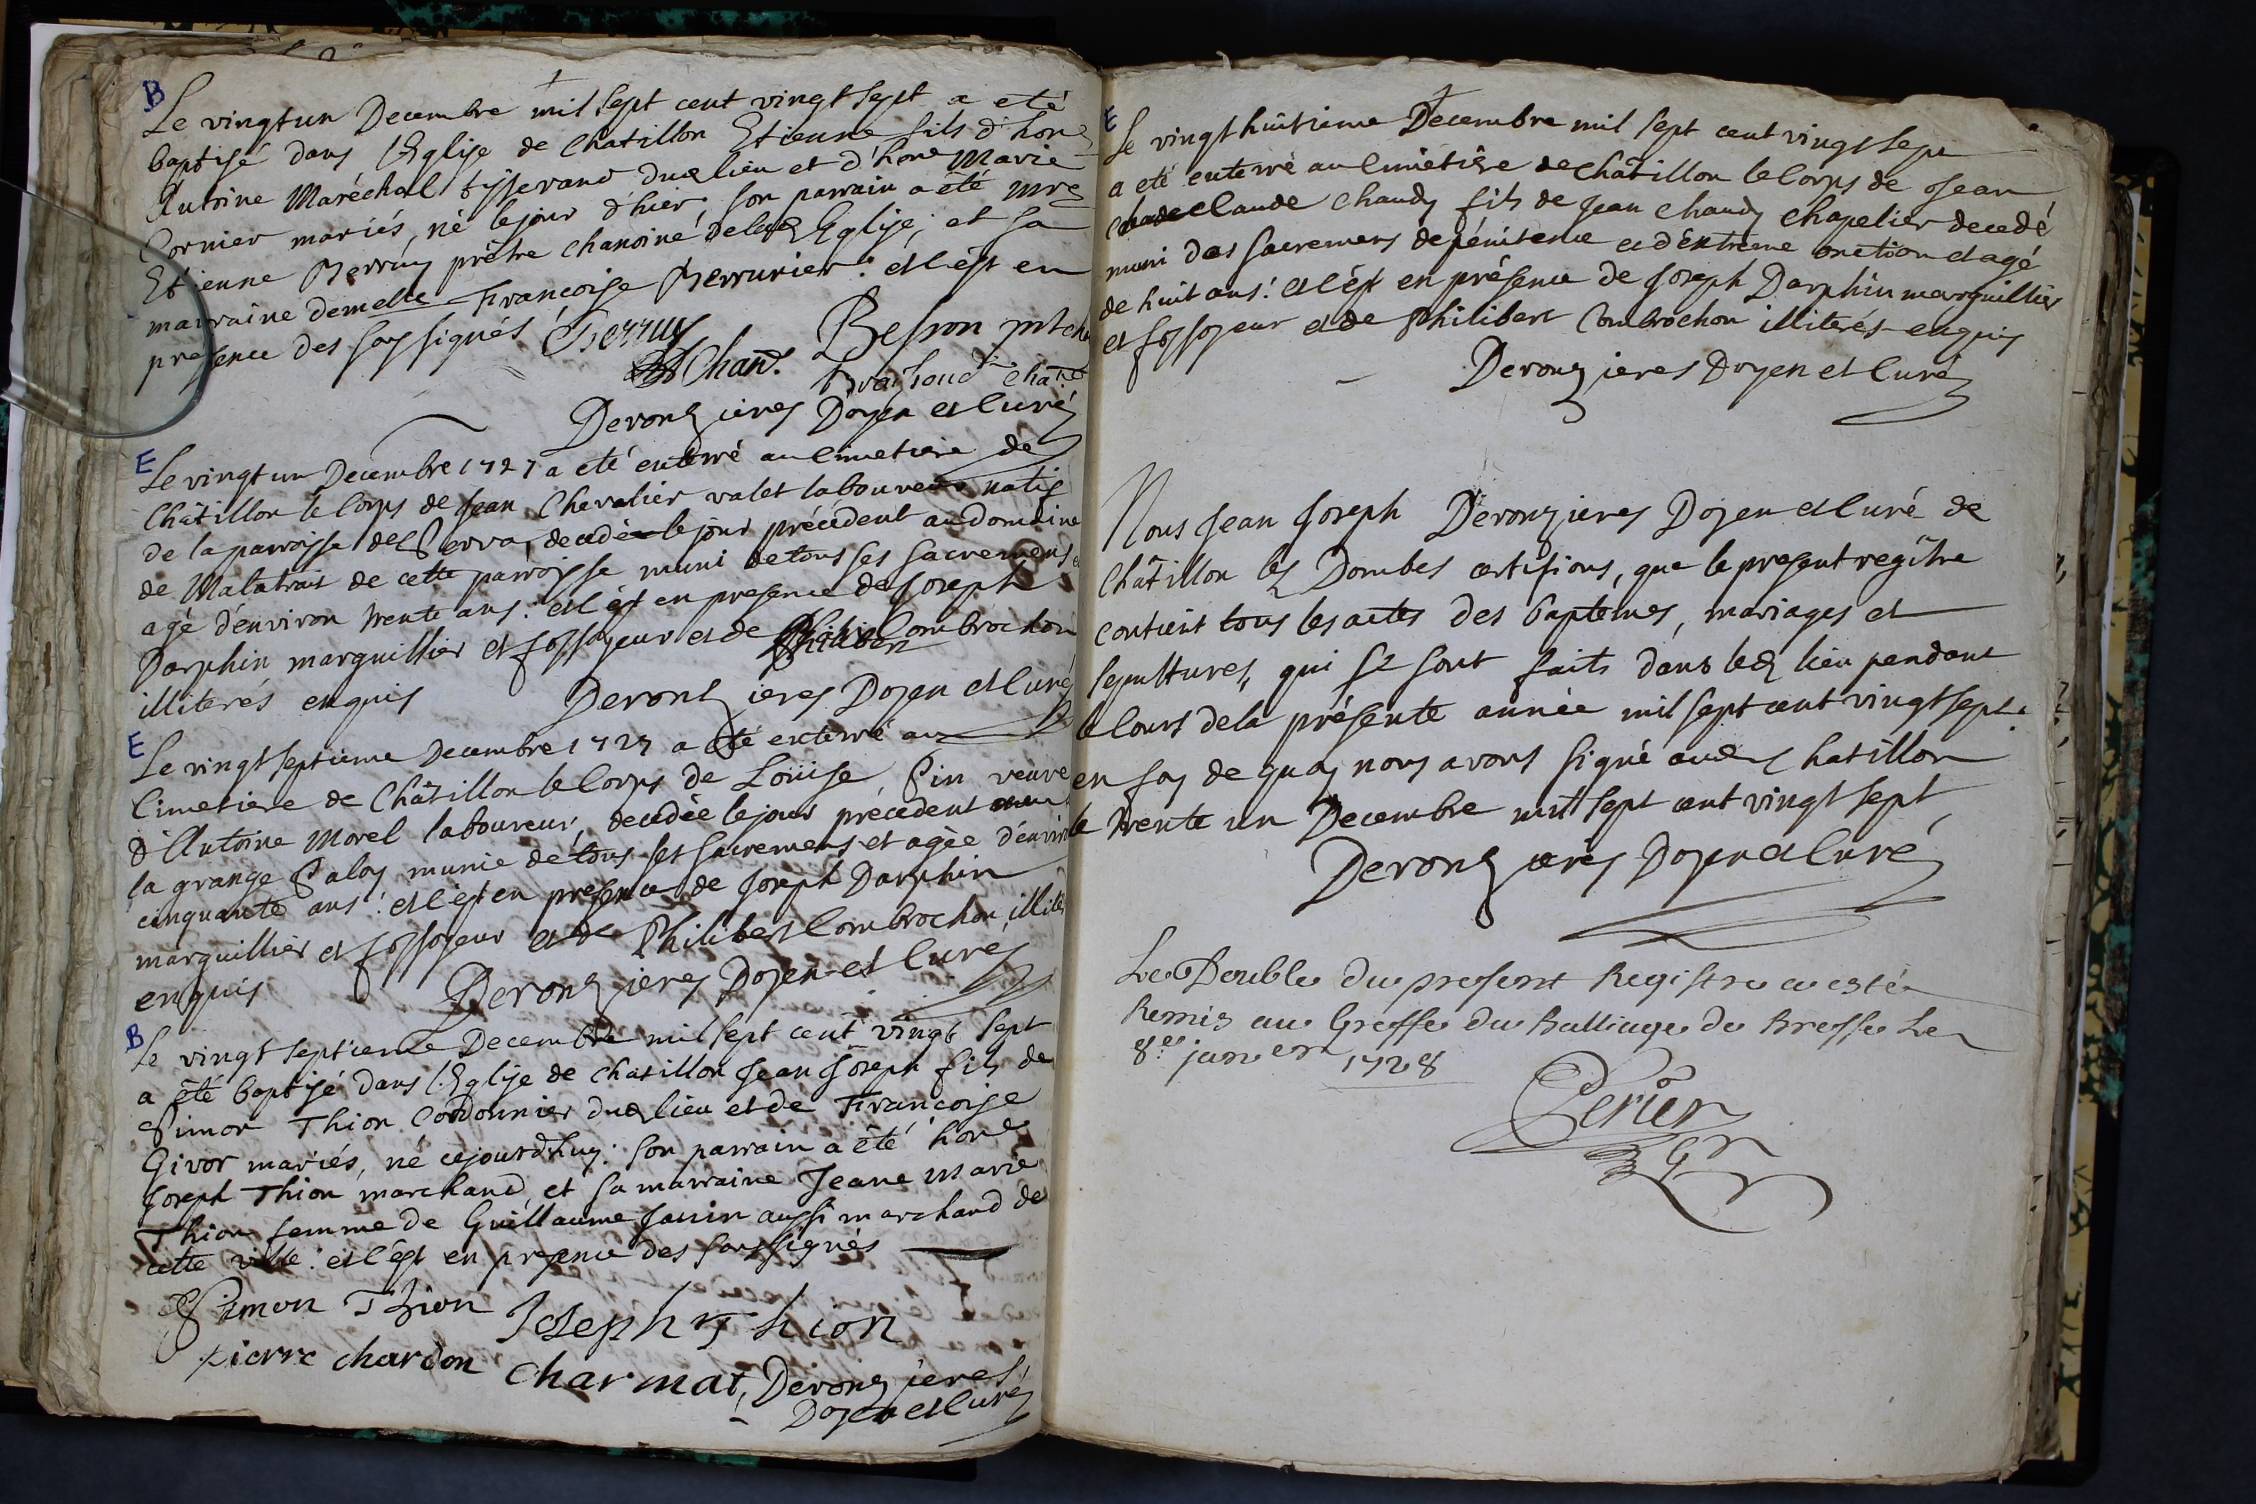 B
Le vingtun Decembre mil sept cent vingt sept a eté
baptisé dans l'Eglise de Chatillon Etienne fils d'hone
Antoine Maréchal tisserand dud lieu et d'hone Marie
Cornier mariés, né le jour d'hier, son parrain a été mre
Etienne Perruy prêtre chanoine de lad Eglise, et sa
marraine demelle Françoise Perrurier: et c'est en
presence des soussignés
Chan.
Deronzieres Doyen et Curé
E
Le vingt un Decembre 1727 a eté enterré au Cimetiere de
Châtillon le Corps de Jean Chevalier valet laboureur natif
de la paroisse de Serva, decedé le jour précédent au domaine
de Malatrait de cette paroisse muni de tous ses sacremens et
agé d'environ trente ans: et c'est en presence de Joseph
Darphin marguillier et fossoyeur et de Philibert Combrochon
illiterés enquis
Deronzieres Doyen et Curé
E
Le vingt septieme Decembre 1727 a eté enterré au
Cimetiere de Châtillon le Corps de Loüise Pin veuve
d'Antoine Morel laboureur, decedée le jour précedent
la grange Paloy munie de tous ses sacremens et agée d'environ
cinquante ans: et c'est en presence de Joseph Darphin
marguillier et fossoyeur et de Philibert Combrochon illités
enquis
Deronzieres Doyen et Curé
B
Le vingt septieme Decembre mil sept cent vingt sept
a été baptisé dans l'Eglise de Chatillon Jean Joseph fils de
Simon Thion Cordonnier dud lieu et de Françoise
Givor mariés, né cejourd'huy: son parrain a été hone
Joseph Thion marchand, et sa marraine Jeane Marie
Thion femme de Guillaume Janin aussi marchand de
cette ville: et c'est en presence des soussignés
Simon Thion
Joseph Thion
Pierre chardon
Charmat, Deronzieres
Doyen et Curé
E
Le vingt huitieme Decembre mil sept cent vingt sept
a eté enterré au Cimêtière de Châtillon le Corps de Jean
Claude Chaudy fils de Jean Chaudy Chapelier decedé
muni des Sacremens de pénitence et d'extrême onction et agé
de huit ans: et c'est en présence de Joseph Darphin marguillier
et fossoyeur et de Philibert Combrochon illiterés enquis
Deronzieres Doyen et Curé
Nous Jean Joseph Deronzieres Doyen et Curé de
Châtillon lez Dombes certifions, que le present regître
contient tous les actes des baptêmes, mariages et
sepultures, qui se sont faits dans led lieu pendant
le Cours de la présente année mil sept cent vingt sept.
en foy de quoy nous avons signé aud Chatillon
le trente un Decembre mil sept cent vingt sept
Deronzieres Doyen et Curé
Le Double du present Registre a esté
Remis au Greffe du Balliage de Bresse Le
8e janvier 1728
Perier